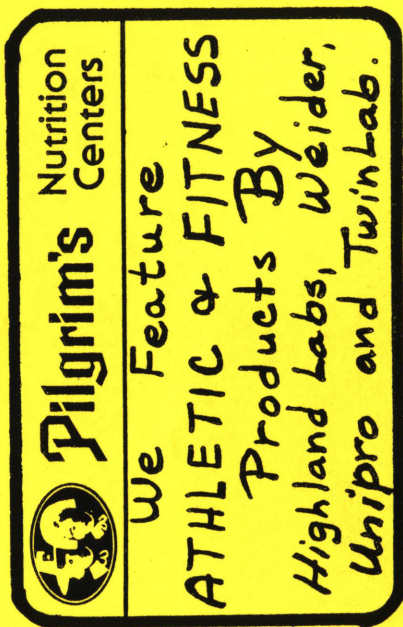 Pilgrim's Nutrition
Centers
We Feature
ATHLETIC & FITNESS
Products By
Highland Labs, Weider,
Unipro and TwinLab.